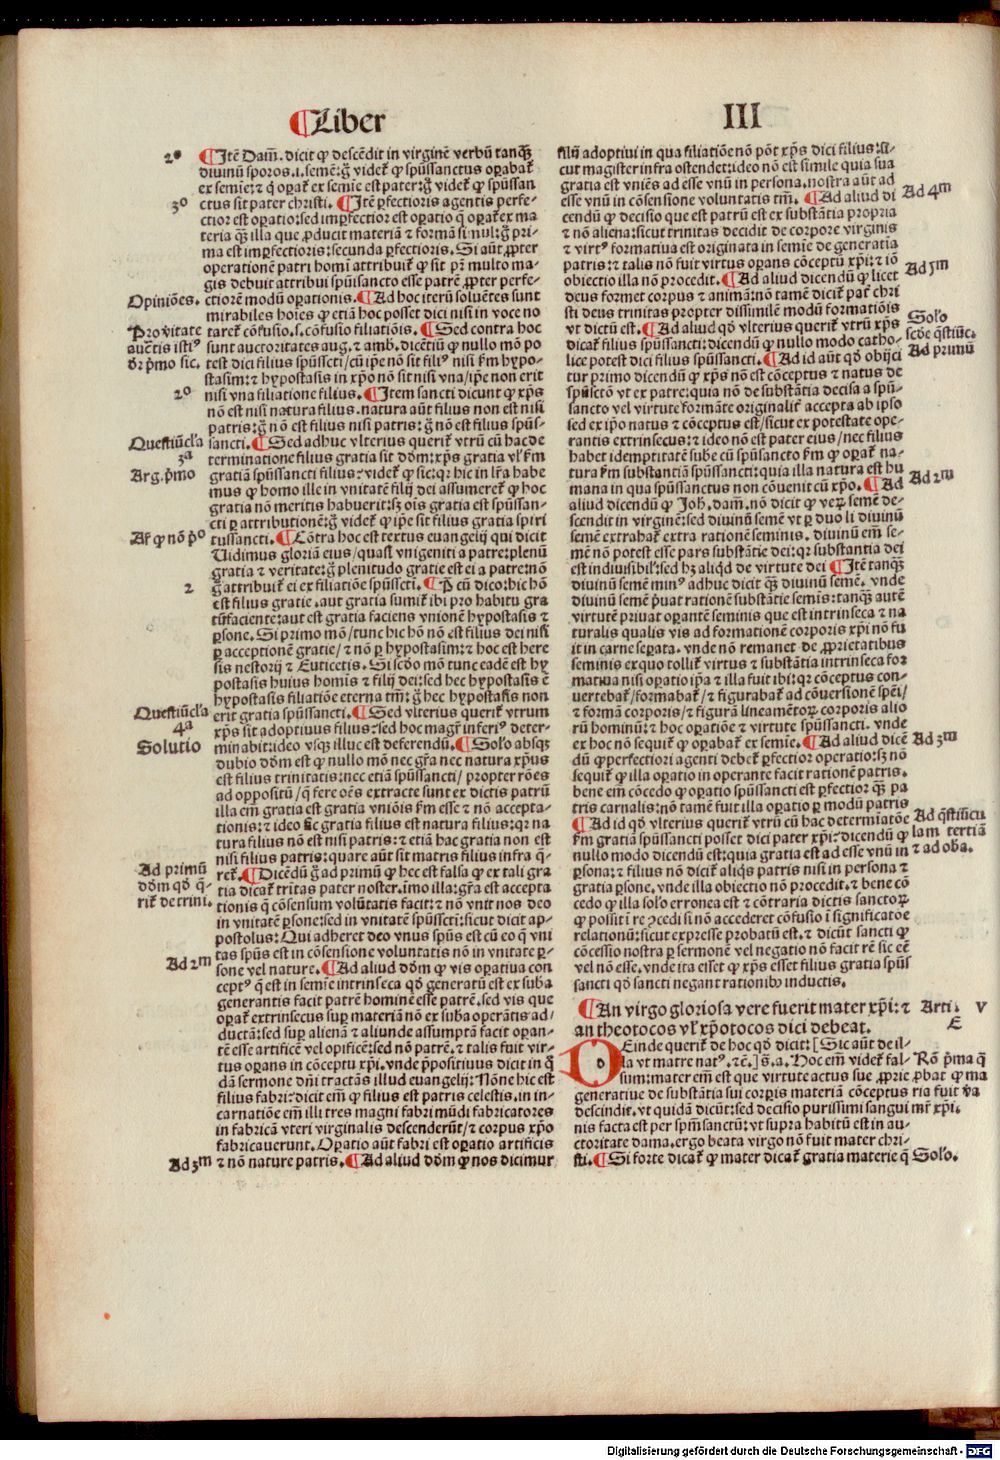 ¶Liber III
2º
¶Itē Dam̄. dicit ꝙ descēdit in virginē verbū tanq̄ꝫ
diuinū sporos .i. semē: g̊ videt᷑ ꝙ spūssanctus oꝑabat᷑
ex semīe: ⁊ q̇ oꝑat᷑ ex semīe est pater: g̊ videt᷑ ꝙ spūssan
3º
ctus sit pater christi. ¶Itē ꝑfectioris agentis perfe-
ctior est oꝑatio: sed imꝑfectior est oꝑatio q̄ oꝑat᷑ ex ma
teria q̄ꝫ illa que ꝓducit materiā ⁊ formā simul: g̊ pri-
ma est imꝑfectioris: secunda ꝑfectioris. Si aūt ꝓpter
operationē patri homī attribuit᷑ ꝙ sit pr̄: multo ma-
gis debuit attribui spūisancto esse patrē ꝓpter perfe-
Opiniōes.
ctiorē modū oꝑationis. ¶Ad hoc iterū soluētes sunt
mirabiles hoīes ꝙ etiā hoc posset dici nisi in voce no
Pro vitate
auctis istiꝰ
dr̄ pmo sic.
taret᷑ cōfusio .s. cōfusio filiatiōis. ¶Sed contra hoc
sunt auctoritates aug. ⁊ amb. dicētiū ꝙ nullo mō po
test dici filius spūsscti/ cū ip̄e nō sit filiꝰ nisi fm hypo-
stasim: ⁊ hypostasis in xp̄o nō sit nisi vna/ ip̄e non erit
2º
nisi vna filiatione filius. ¶Item sancti dicunt ꝙ xp̄s
nō est nisi natura filius. natura aūt filius non est nisi
patris: g̊ nō est filius nisi patris: g̊ nō est filius spūs-
Questiūcl'a
3ª
sancti. ¶Sed adhuc vlterius querit᷑ vtrū cū hac de
terminatione filius gratia sit dōm: xp̄s gratia vl' fm
Arg. pmo
gratiā spūssancti filius: videt᷑ ꝙ sic: qr hic in lr̄a habe
mus ꝙ homo ille in vnitatē filij dei assumeret᷑ ꝙ hoc
gratia nō meritis habuerit: sꝫ oīs gratia est spūssan-
cti ꝑ attributionē: g̊ videt᷑ ꝙ ip̄e sit filius gratia spiri
Ar̄ ꝙ nō pº
tussancti. ¶Cōtra hoc est textus euangelij qui dicit
Uidimus gloriā eius/ quasi vnigeniti a patre: plenū
gratia ⁊ veritate: g̊ plenitudo gratie est ei a patre: nō
2
g̊ attribuit᷑ ei ex filiatiōe spūsscti. ¶P̄ cū dico: hic hō
est filius gratie. aut gratia sumit᷑ ibi pro habitu gra
tūfaciente: aut est gratia faciens vnionē hypostasis ⁊
ꝑsone. Si primo mō/ tunc hic hō nō est filius dei nisi
ꝑ acceptionē gratie/ ⁊ nō ꝑ hypostasim: ⁊ hoc est here
sis nestorij ⁊ Euticetis. Si scdo mō tunc eadē est hy
postasis huius homīs ⁊ filij dei: sed hec hypostasis ē
hypostasis filiatiōe eterna tm̄: g̊ hec hypostasis non
Questiūcl'a
4ª
erit gratia spūssancti. ¶Sed vlterius querit᷑ vtrum
xp̄s sit adoptiuus filius: sed hoc magr̄ inferiꝰ deter-
Solutio
minabit: ideo vsqꝫ illuc est deferendū. ¶Solo absqꝫ
dubio dōm est ꝙ nullo mō nec gr̄a nec natura xp̄us
est filius trinitatis: nec etiā spūssancti/ propter rōes
ad oppositū/ q̄ fere oēs extracte sunt ex dictis patrū
illa em̄ gratia est gratia vniōis fm esse ⁊ nō accepta-
tionis: ⁊ ideo sic gratia filius est natura filius: qr na
tura filius nō est nisi patris: ⁊ etiā hac gratia non est
nisi filius patris: quare aūt sit matris filius infra q̄-
Ad primū
dōm qd q̄-
rit᷑ de trini.
ret᷑. ¶Dicēdū g̊ ad primū ꝙ hec est falsa ꝙ ex tali gra
tia dicat᷑ tritas pater noster. imo illa: gr̄a est accepta
tionis q̄ cōsensum volūtatis facit: ⁊ nō vnit nos deo
in vnitatē ꝑsone: sed in vnitatē spūsscti: sicut dicit ap-
postolus: Qui adheret deo vnus spūs est cū eo q̄ vni
Ad 2m
tas spūs est in cōsensione voluntatis nō in vnitate ꝑ-
sone vel nature. ¶Ad aliud dōm ꝙ vis oꝑatiua con
ceptꝰ q̄ est in semīe intrinseca qd generatū est ex suba
generantis facit patrē hominē esse patrē. sed vis que
oꝑat᷑ extrinsecus suꝑ materiā nō ex suba operātis ad/
ductā: sed suꝑ alienā ⁊ aliunde assumptā facit oꝑan-
tē esse artificē vel opificē: sed nō patrē. ⁊ talis fuit vir-
tus oꝑans in cōceptu xp̄i. vnde ꝑpositiuus dicit in q̄
dā sermone dn̄i tractās illud euangelij: Nōne hic est
filius fabri: dicit em̄ ꝙ filius est patris celestis. in in-
carnatiōe em̄ illi tres magni fabri mūdi fabricatores
in fabricā vteri virginalis descenderūt/ ⁊ corpus xp̄o
fabricauerunt. Oꝑatio aūt fabri est oꝑatio artificis
Ad 3m
⁊ nō nature patris. ¶Ad aliud dōm ꝙ nos dicimur
filij adoptiui in qua filiatiōe nō pōt xp̄s dici filius: si-
cut magister infra ostendet: ideo nō est simile quia sua
gratia est vniēs ad esse vnū in persona. nostra aūt ad
Ad 4m
esse vnū in cōsensione voluntatis tm̄. ¶Ad aliud di
cendū ꝙ decisio que est patrū est ex substātia propria
⁊ nō aliena: sicut trinitas decidit de corpore virginis
⁊ virtꝰ formatiua est originata in semīe de generatīa
Ad 5m
patris: ⁊ talis nō fuit virtus oꝑans cōceptū xp̄i: ⁊ iō
obiectio illa nō procedit. ¶Ad aliud dicendū ꝙ licet
deus formet corpus ⁊ animā: nō tamē dicit᷑ pat᷑ chri
Solo
scde qstiūc.
sti deus trinitas propter dissimilē modū formatiōis
vt dictū est. ¶Ad aliud qd vlterius querit᷑ vtrū xp̄s
Ad primū
dicat᷑ filius spūssancti: dicendū ꝙ nullo modo catho-
lice potest dici filius spūssancti. ¶Ad id aūt qd obijci
tur primo dicendū ꝙ xp̄s nō est cōceptus ⁊ natus de
spūscto vt ex patre: quia nō de substātia decisa a spū-
sancto vel virtute formāte originalit᷑ accepta ab ipso
sed ex ip̄o natus ⁊ cōceptus est/ sicut ex potestate ope-
rantis extrinsecus: ⁊ ideo nō est pater eius/ nec filius
habet idemptitatē sube cū spūsancto fm ꝙ oꝑat᷑ na-
Ad 2m
tura fm substantiā spūssancti: quia illa natura est hu
mana in qua spūssanctus nō cōuenit cū xp̄o. ¶Ad
aliud dicendū ꝙ Joh. dam. nō dicit ꝙ verꝫ semē de-
scendit in virginē: sed diuinū semē vt ꝑ duo li diuinū
semē extrahat᷑ extra rationē seminis. diuinū em̄ se-
mē nō potest esse pars substātie dei: qr substantia dei
est indiuisibil': sed hꝫ aliqd de virtute dei ¶Itē tanq̄ꝫ
diuinū semē minꝰ adhuc dicit q̄ꝫ diuinū semē. vnde
diuinū semē pᷣuat rationē substātie semīs: tanq̄ꝫ autē
virtutē priuat oꝑantē seminis que est intrinseca ⁊ na
turalis qualis vis ad formationē corporis xp̄i nō fu
it in carne seꝑata. vnde nō remanet de ꝓprietatibus
seminis ex quo tollit᷑ virtus ⁊ substātia intrinseca for
matiua nisi oꝑatio ip̄a ⁊ illa fuit ibi: qr cōceptus con-
uertebat᷑/ formabat᷑/ ⁊ figurabat᷑ ad cōuersionē spēi/
⁊ formā corporis/ ⁊ figurā lineamētoꝝ corporis alio
rū hominū: ⁊ hoc oꝑatiōe ⁊ virtute spūssancti. vnde
Ad 3m
ex hoc nō sequit᷑ ꝙ oꝑabat᷑ ex semīe. ¶Ad aliud dicē
dū ꝙ perfectiori agenti debet᷑ ꝑfectior operatio: sꝫ nō
sequit᷑ ꝙ illa oꝑatio in operante facit rationē patris.
bene em̄ cōcedo ꝙ oꝑatio spūssancti est ꝑfectior q̄ꝫ pa
tris carnalis: nō tamē fuit illa oꝑatio ꝑ modū patris
Ad qstiūcu
lam tertiā
⁊ ad oba.
¶Ad id qd vlterius querit᷑ vtrū cū hac determiatōe
fm gratiā spūssancti posset dici pater xp̄i: dicendū ꝙ
nullo modo dicendū est: quia gratia est ad esse vnū in
ꝑsona: ⁊ filius nō dicit᷑ aliqs patris nisi in persona ⁊
gratia ꝑsone. vnde illa obiectio nō procedit. ⁊ bene cō
cedo ꝙ illa solo erronea est ⁊ cōtraria dictis sanctoꝝ
ꝙ possit in re ꝯcedi si nō accederet cōfusio ī significatōe
relationū: sicut expresse probatū est. ⁊ dicūt sancti ꝙ
cōcessio nostra ꝑ sermonē vel negatio nō facit rē sic eē
vel nō esse. vnde ita eisset ꝙ xp̄s esset filius gratia spūs
sancti qd sancti negant rationibꝰ inductis.
Arti. V
E
¶An virgo gloriosa vere fuerit mater xp̄i: ⁊
an theotocos vl' xp̄otocos dici debeat.
DEinde querit᷑ de hoc qd dicit: [Sic aūt de il-
la vt matre natꝰ. ⁊c̄.] s̄. a. Hoc em̄ videt᷑ fal-
sum: mater em̄ est que virtute actus sue ꝓprie
generatiue de substātia sui corꝑis materiā cōceptus
descindit. vt quidā dicūt: sed decisio purissimi sangui
nis facta est per sp̄m sanctū: vt supra habitū est in au-
ctoritate dama. ergo beata virgo nō fuit mater chri-
sti. ¶Si forte dicat᷑ ꝙ mater dicat᷑ gratia materie q̄
Rō pma q̄
ꝓbat ꝙ ma
ria fuit va
mr̄ xp̄i.
Solo.
Digitalisierung gefördert durch die Deutsche Forschungsgemeinschaft - DFG